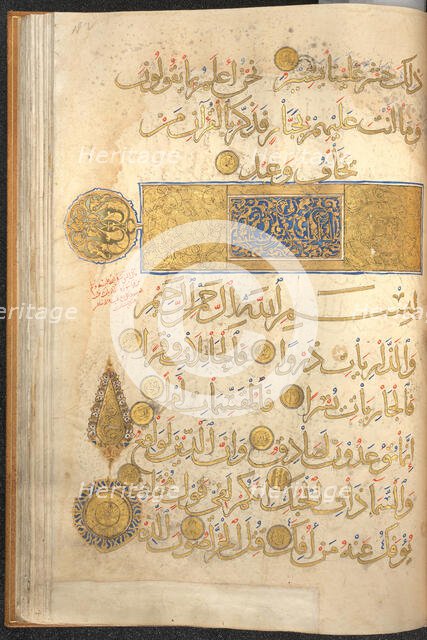 ذلك حشر علينا يسير نحن أعلم بما يقولون
وما أنت عليهم بجبار فذكر بالقرآن من
يخاف وعيد
بسم الله الرحمن الرحيم
والذاريات ذروا فالحاملات وقرا
فالجاريات يسرا فالمقسمات أمرا
إنما توعدون لصادق وإن الدين لواقع
والسماء ذات الحبك إنكم لفي قول مختلف
يؤفك عنه من أفك قتل الخراصون الذين
Heritage
Heritage
Heritage
Heritage
Heritage
Heritage